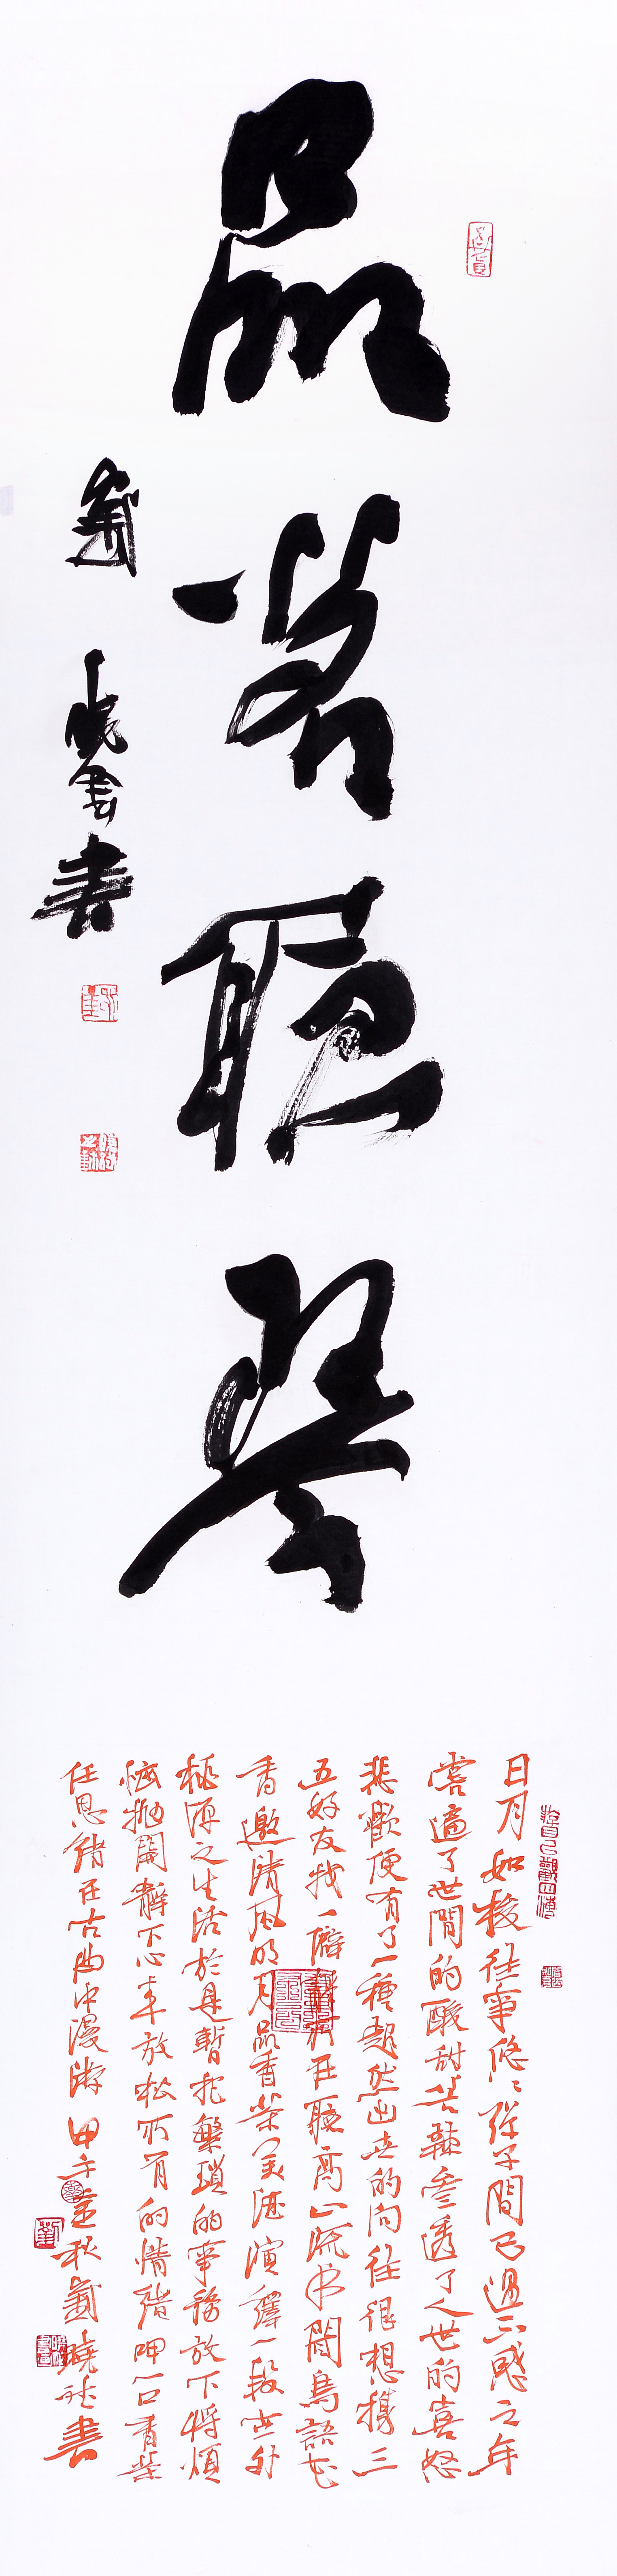 品茗聽琴
戴曉雲書
日月如梭往事悠悠彈子間已過不惑之年
嘗遍了世間的酸甜苦辣叁透了人世的喜怒
悲歡便有了一種超然出世的向往很想携三
五好友找一僻在聽高山流水聞鳥語花
香邀清風明月品香茶美酒演繹一段世外
桃源之生活於是暫抛繁瑣的事務放下將煩
惱抛開靜下心来放松所有的情緒呷一口香茶
任思緒在古曲中漫游甲午孟秋戴曉雲書